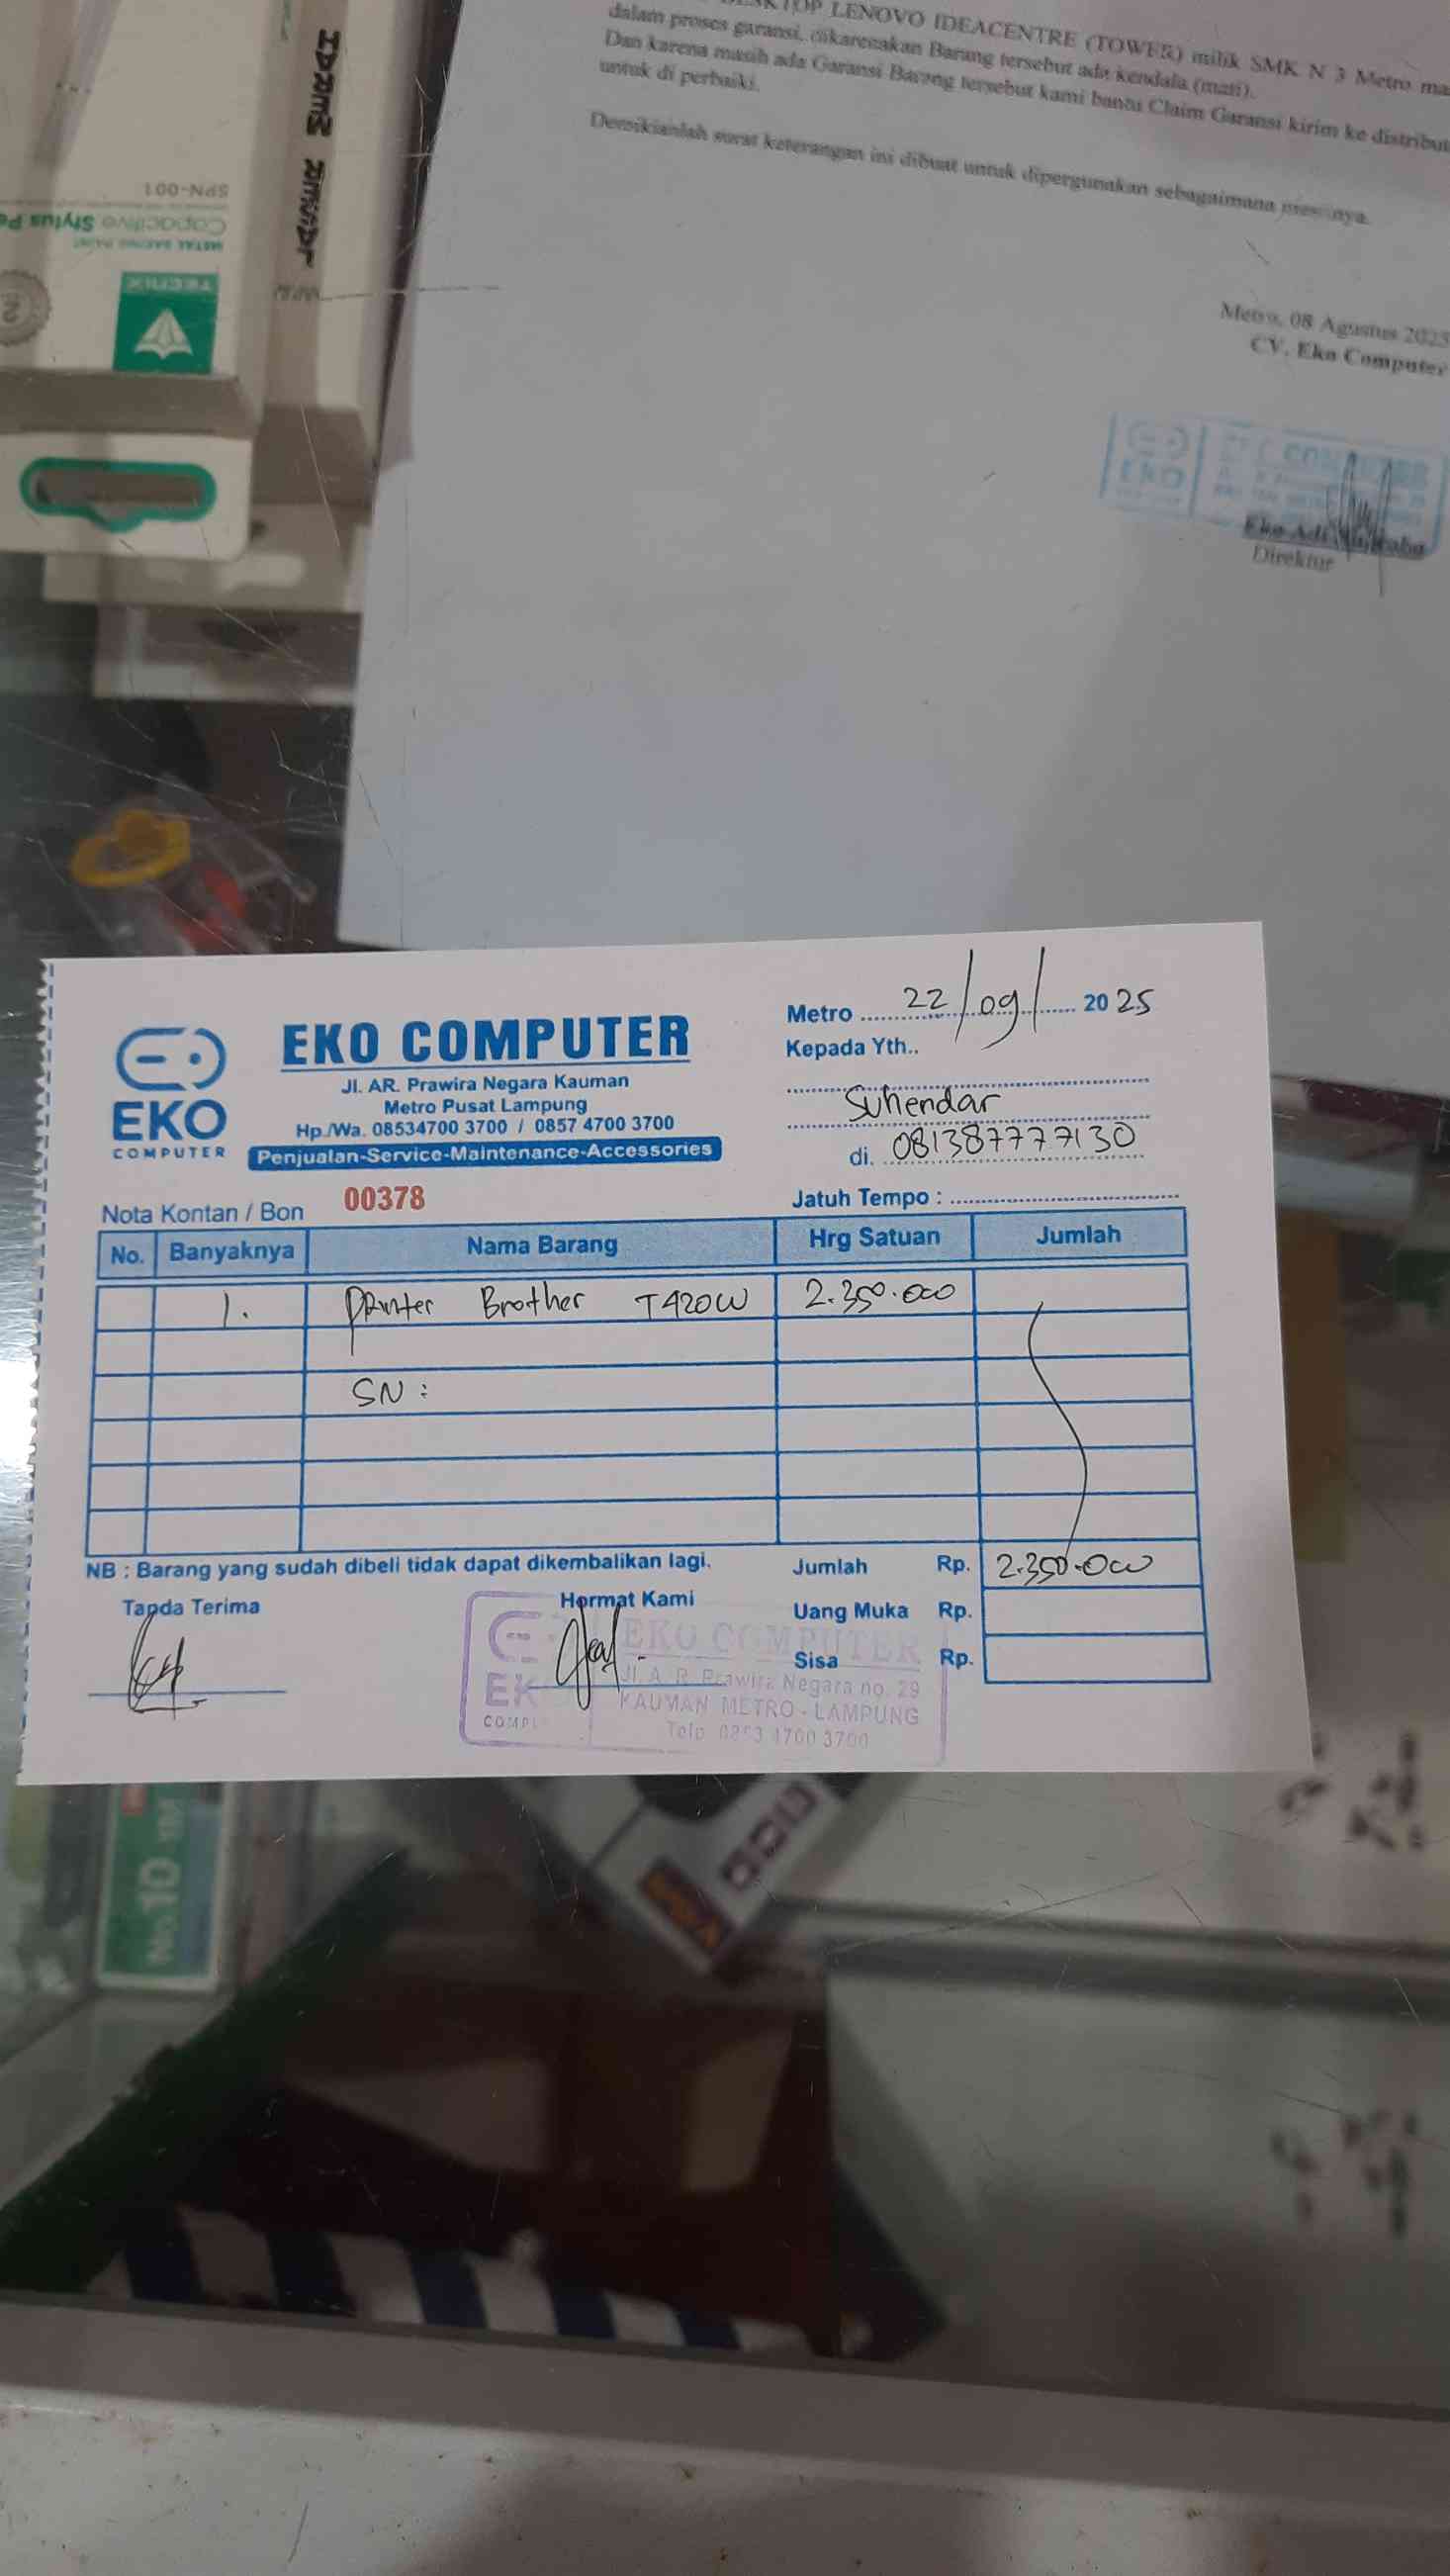 LENOVO IDEACENTRE (TOWER) milik SMK N 3 Metro
dalam proses garansi, dikarenakan Barang tersebut ada kendala (mati).
Dan karena masih ada Garansi Barang tersebut kami bantu Claim Garansi kirim ke
untuk di perbaiki.
Demikianlah surat keterangan ini dibuat untuk dipergunakan sebagaimana
Metro, 08 Agustus 2025
CV. Eko Computer
EKO
Direktur
SPN-001
Capacitive Stylus
EKO
COMPUTER
EKO COMPUTER
Jl. AR. Prawira Negara Kauman
Metro Pusat Lampung
Hp./Wa. 08534700 3700 / 0857 4700 3700
Penjualan-Service-Maintenance-Accessories
Metro 22/09/ 2025
Kepada Yth..
Suhendar
di. 081387777130
Nota Kontan / Bon 00378
Jatuh Tempo :
No. Banyaknya Nama Barang Hrg Satuan Jumlah
1. Printer Brother T420W 2.350.000
SN :
NB : Barang yang sudah dibeli tidak dapat dikembalikan lagi.
Jumlah Rp. 2.350.000
Tanda Terima
Hormat Kami
Uang Muka Rp.
Sisa Rp.
EKO COMPUTER
Jl. A. R. Prawira Negara no. 29
KAUMAN METRO - LAMPUNG
No.10